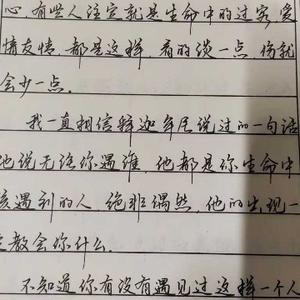 心，有些人注定就是生命中的过客，爱
情友情，都是这样，看的淡一点，伤就
会少一点。
我一直相信释迦牟尼说过的一句话
他说无论你遇谁，他都是你生命中
该遇到的人，绝非偶然，他的出现一
定教会你什么。
不知道你有没有遇见过这样一个人